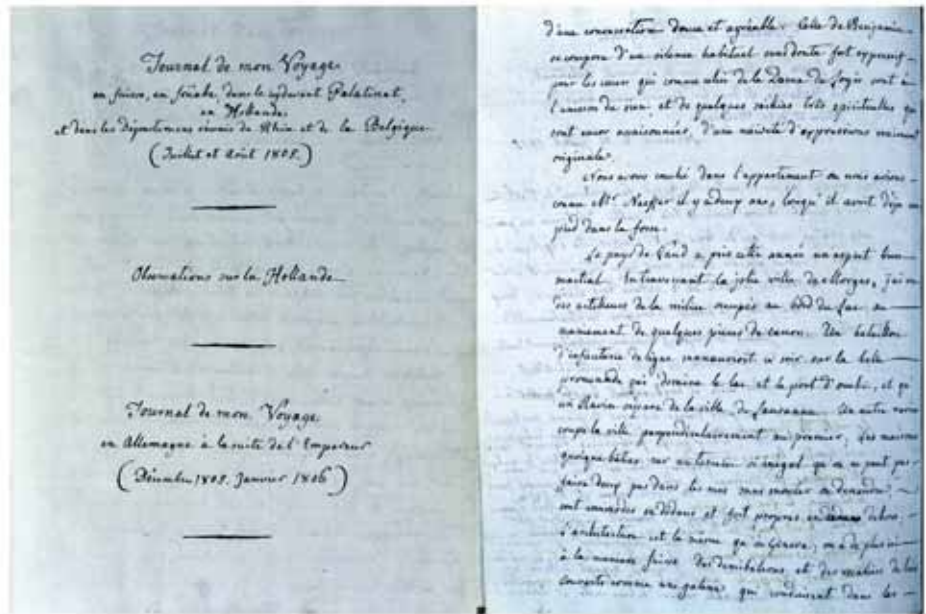 Journal de mon Voyage
en Suisse, en Souabe, dans le cydevant Palatinat,
en Hollande
et dans les Départemens réunis du Rhin et de la Belgique.
(Juillet et Août 1805.)
Observations sur la Hollande
Journal de mon Voyage
en Allemagne à la suite de l'Empereur
(Décembre 1805. Janvier 1806)
d'une conversation douce et agréable. Celle de Benjamin
se compose d'un silence habituel sans doute fort expressif
pour les cœurs qui comme celui de la Dame du logis sont à
l'unisson du sien, et de quelques saillies très spirituelles qui
sont encor assaisonnées, d'une naïveté d'expressions vraiment
originale.
Nous avons couché dans l'appartement où nous avions
connu Mr. Necker il y a deux ans, lorsqu'il avait déja un
pied dans la fosse.
Le pays de Vaud a pris cette année un aspect tout
martial. En traversant la jolie ville de Morges, j'ai vu
des artilleurs de la milice occupés au bord du lac au
maniement de quelques pièces de canon. Un bataillon
d'infanterie de ligne manœuvroit ce soir sur la belle
promenade qui domine le lac et le port d'ouchi, et qu'
un Ravin sépare de la ville de Lausanne. Un autre ravin
coupe la ville perpendiculairement au premier, les maisons
quoique bâties sur un terrain si inégal qu'on ne peut pas
faire deux pas dans les rues sans monter ou descendre
sont commodes en dedans et fort propres en dehors.
L'architecture est la même qu'à Genève, on a de plus ici
à la manière suisse des et des escaliers de bois
couverts comme une galerie qui conduisent dans les